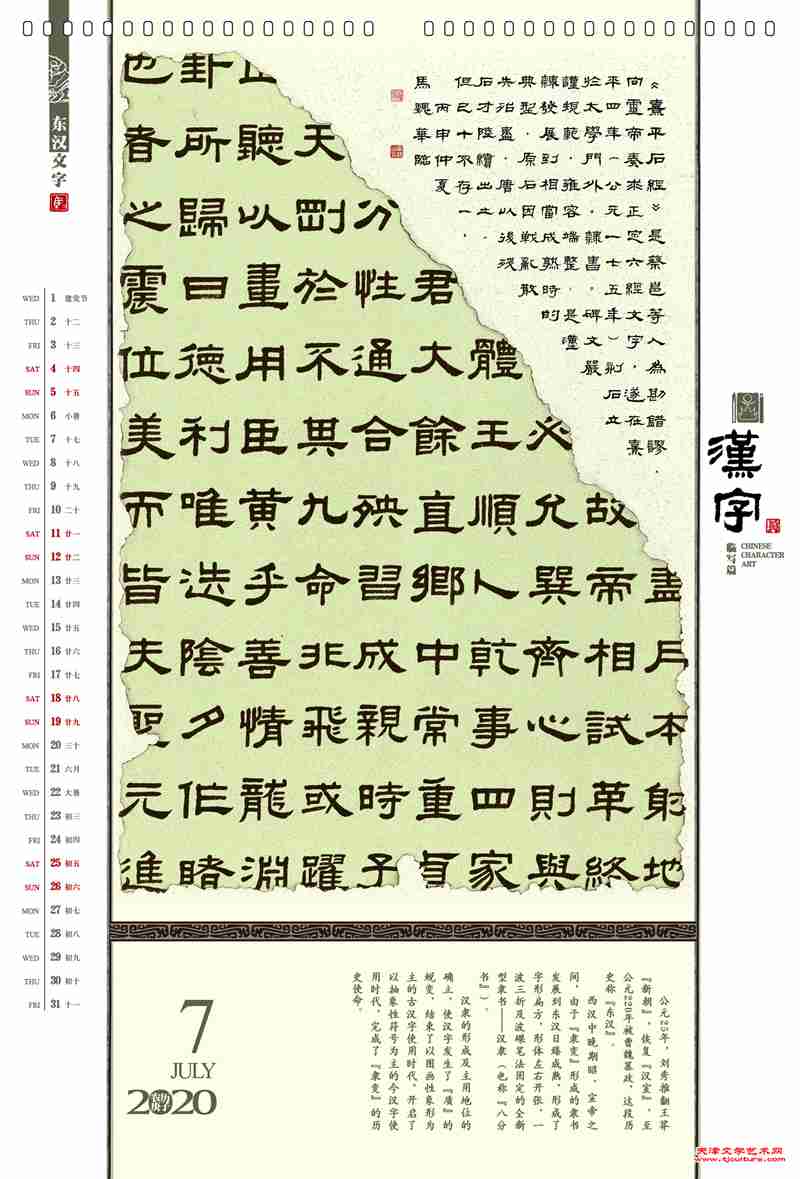 东汉文字
WED 1 建党节
THU 2 十二
FRI 3 十三
SAT 4 十四
SUN 5 十五
MON 6 小暑
TUE 7 十七
WED 8 十八
THU 9 十九
FRI 10 二十
SAT 11 廿一
SUN 12 廿二
MON 13 廿三
TUE 14 廿四
WED 15 廿五
THU 16 廿六
FRI 17 廿七
SAT 18 廿八
SUN 19 廿九
MON 20 三十
TUE 21 六月
WED 22 大暑
THU 23 初三
FRI 24 初四
SAT 25 初五
SUN 26 初六
MON 27 初七
TUE 28 初八
WED 29 初九
THU 30 初十
FRI 31 十一
《熹平石經》是蔡邕等人為勘錯謬，
向靈帝奏求正定六經文字，遂在熹
平四年（公元一七五年）刊石立
於太學門外，隸書。碑文嚴
謹規範，雍容端整，是漢
隸發展到相當成熟時的
典型。原石因戰亂散
失殆盡，唐以後殘
石才陸續出土，
但已十不存一。
丙申仲夏
馬華臨
盡月本射地
故帝相試革終
必允巽齊心則與
體王順人乾事四家
君大餘直鄉中常重貞
分性通合殃習成親時子
天剛於不其九命飛或躍
正聽以畫用臣黃乎善情龍淵
卦所歸曰德利唯造陰夕作睹
也者之震位美而皆夫聖元進
漢字
临写篇
CHINESE
CHARACTER
ART
公元25年，刘秀推翻王莽
『新朝』，恢复『汉室』，至
公元220年被曹魏篡政，这段历
史称『东汉』。
西汉中晚期昭、宣帝之
间，由于『隶变』形成的隶书
发展到东汉日臻成熟，形成了
字形扁方，形体左右开张，一
波三折及波磔笔法固定的全新
型隶书——汉隶（也称『八分
书』）。
汉隶的形成及主用地位的
确立，使汉字发生了『质』的
蜕变，结束了以图画性象形为
主的古汉字使用时代，开启了
以抽象性符号为主的今汉字使
用时代，完成了『隶变』的历
史使命。
7
JULY
2020
农历庚子
天津文学艺术网
www.tjculture.com